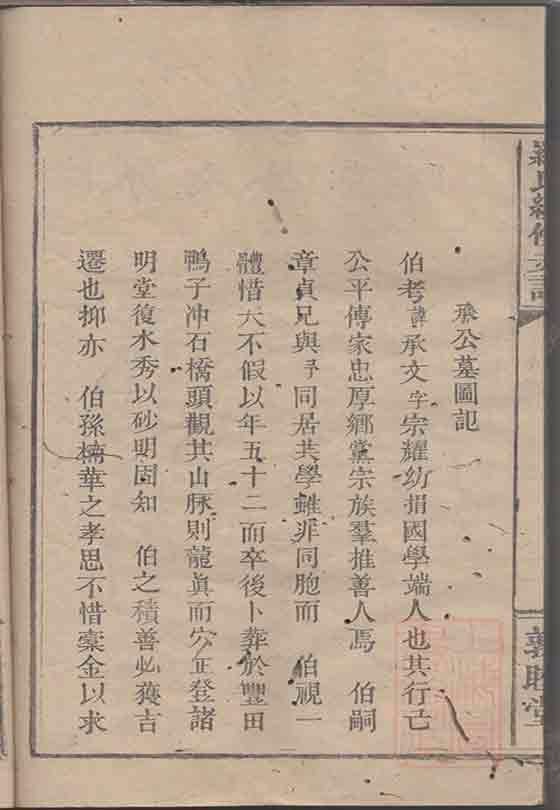 羅氏續修支譜
義聰堂
承公墓圖記
伯考諱承文字宗耀幼捐國學端人也其行己
公平傳家忠厚鄉黨宗族羣推善人焉 伯嗣
章貞兄與予同居共學雖非同胞而 伯視一
體惜天不假以年五十二而卒後卜葬於豐田
鴨子冲石橋頭觀其山脉則龍眞而穴正登諸
明堂復水秀以砂明固知 伯之積善必獲吉
遷也抑亦 伯孫楠華之孝思不惜橐金以求